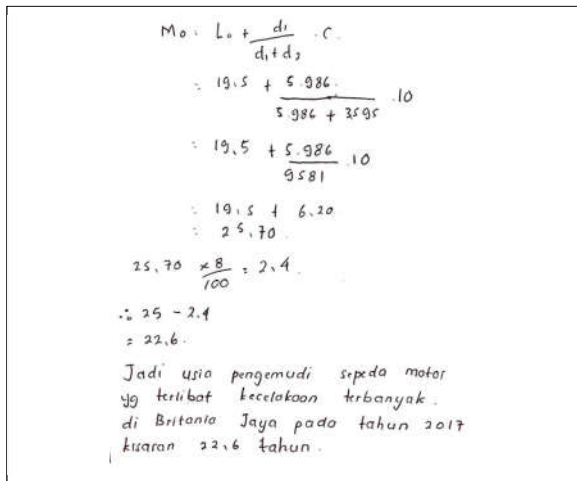 Mo : L₀ + d₁ / d₁ + d₂ . C.
: 19,5 + 5.986 / 5.986 + 3595 . 10
: 19,5 + 5.986 / 9581 . 10
: 19,5 + 6.20
: 25,70.
25,70 × 8 / 100 = 2,4.
∴ 25 - 2.4
= 22,6.
Jadi usia pengemudi sepeda motor
yg terlibat kecelakaan terbanyak.
di Britania Jaya pada tahun 2017
kisaran 22,6 tahun.